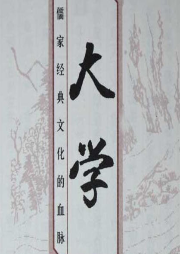 大学
儒家经典文化的血脉